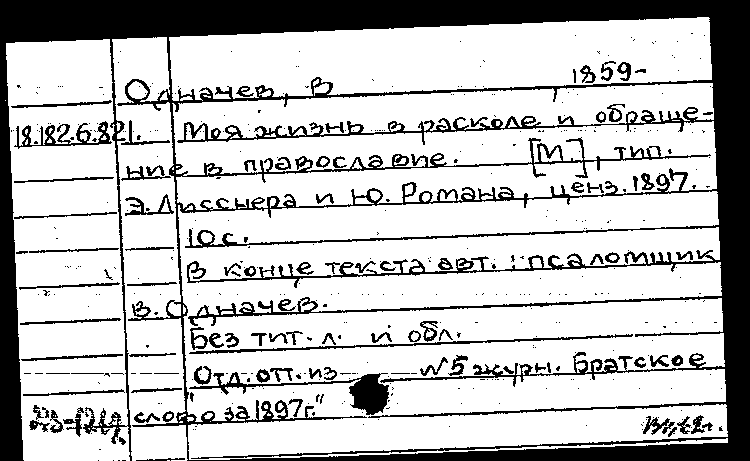 Одначев, В , 1859-
18.182.6.821. Моя жизнь в расколе и обраще-
ние в православие. [М.], тип.
Э. Лисснера и Ю. Романа, ценз. 1897.
10 с.
В конце текста авт.: псаломщик
В. Одначев.
Без тит. л. и обл.
Отд. отт. из "№ 5 журн. Братское
слово за 1897 г."